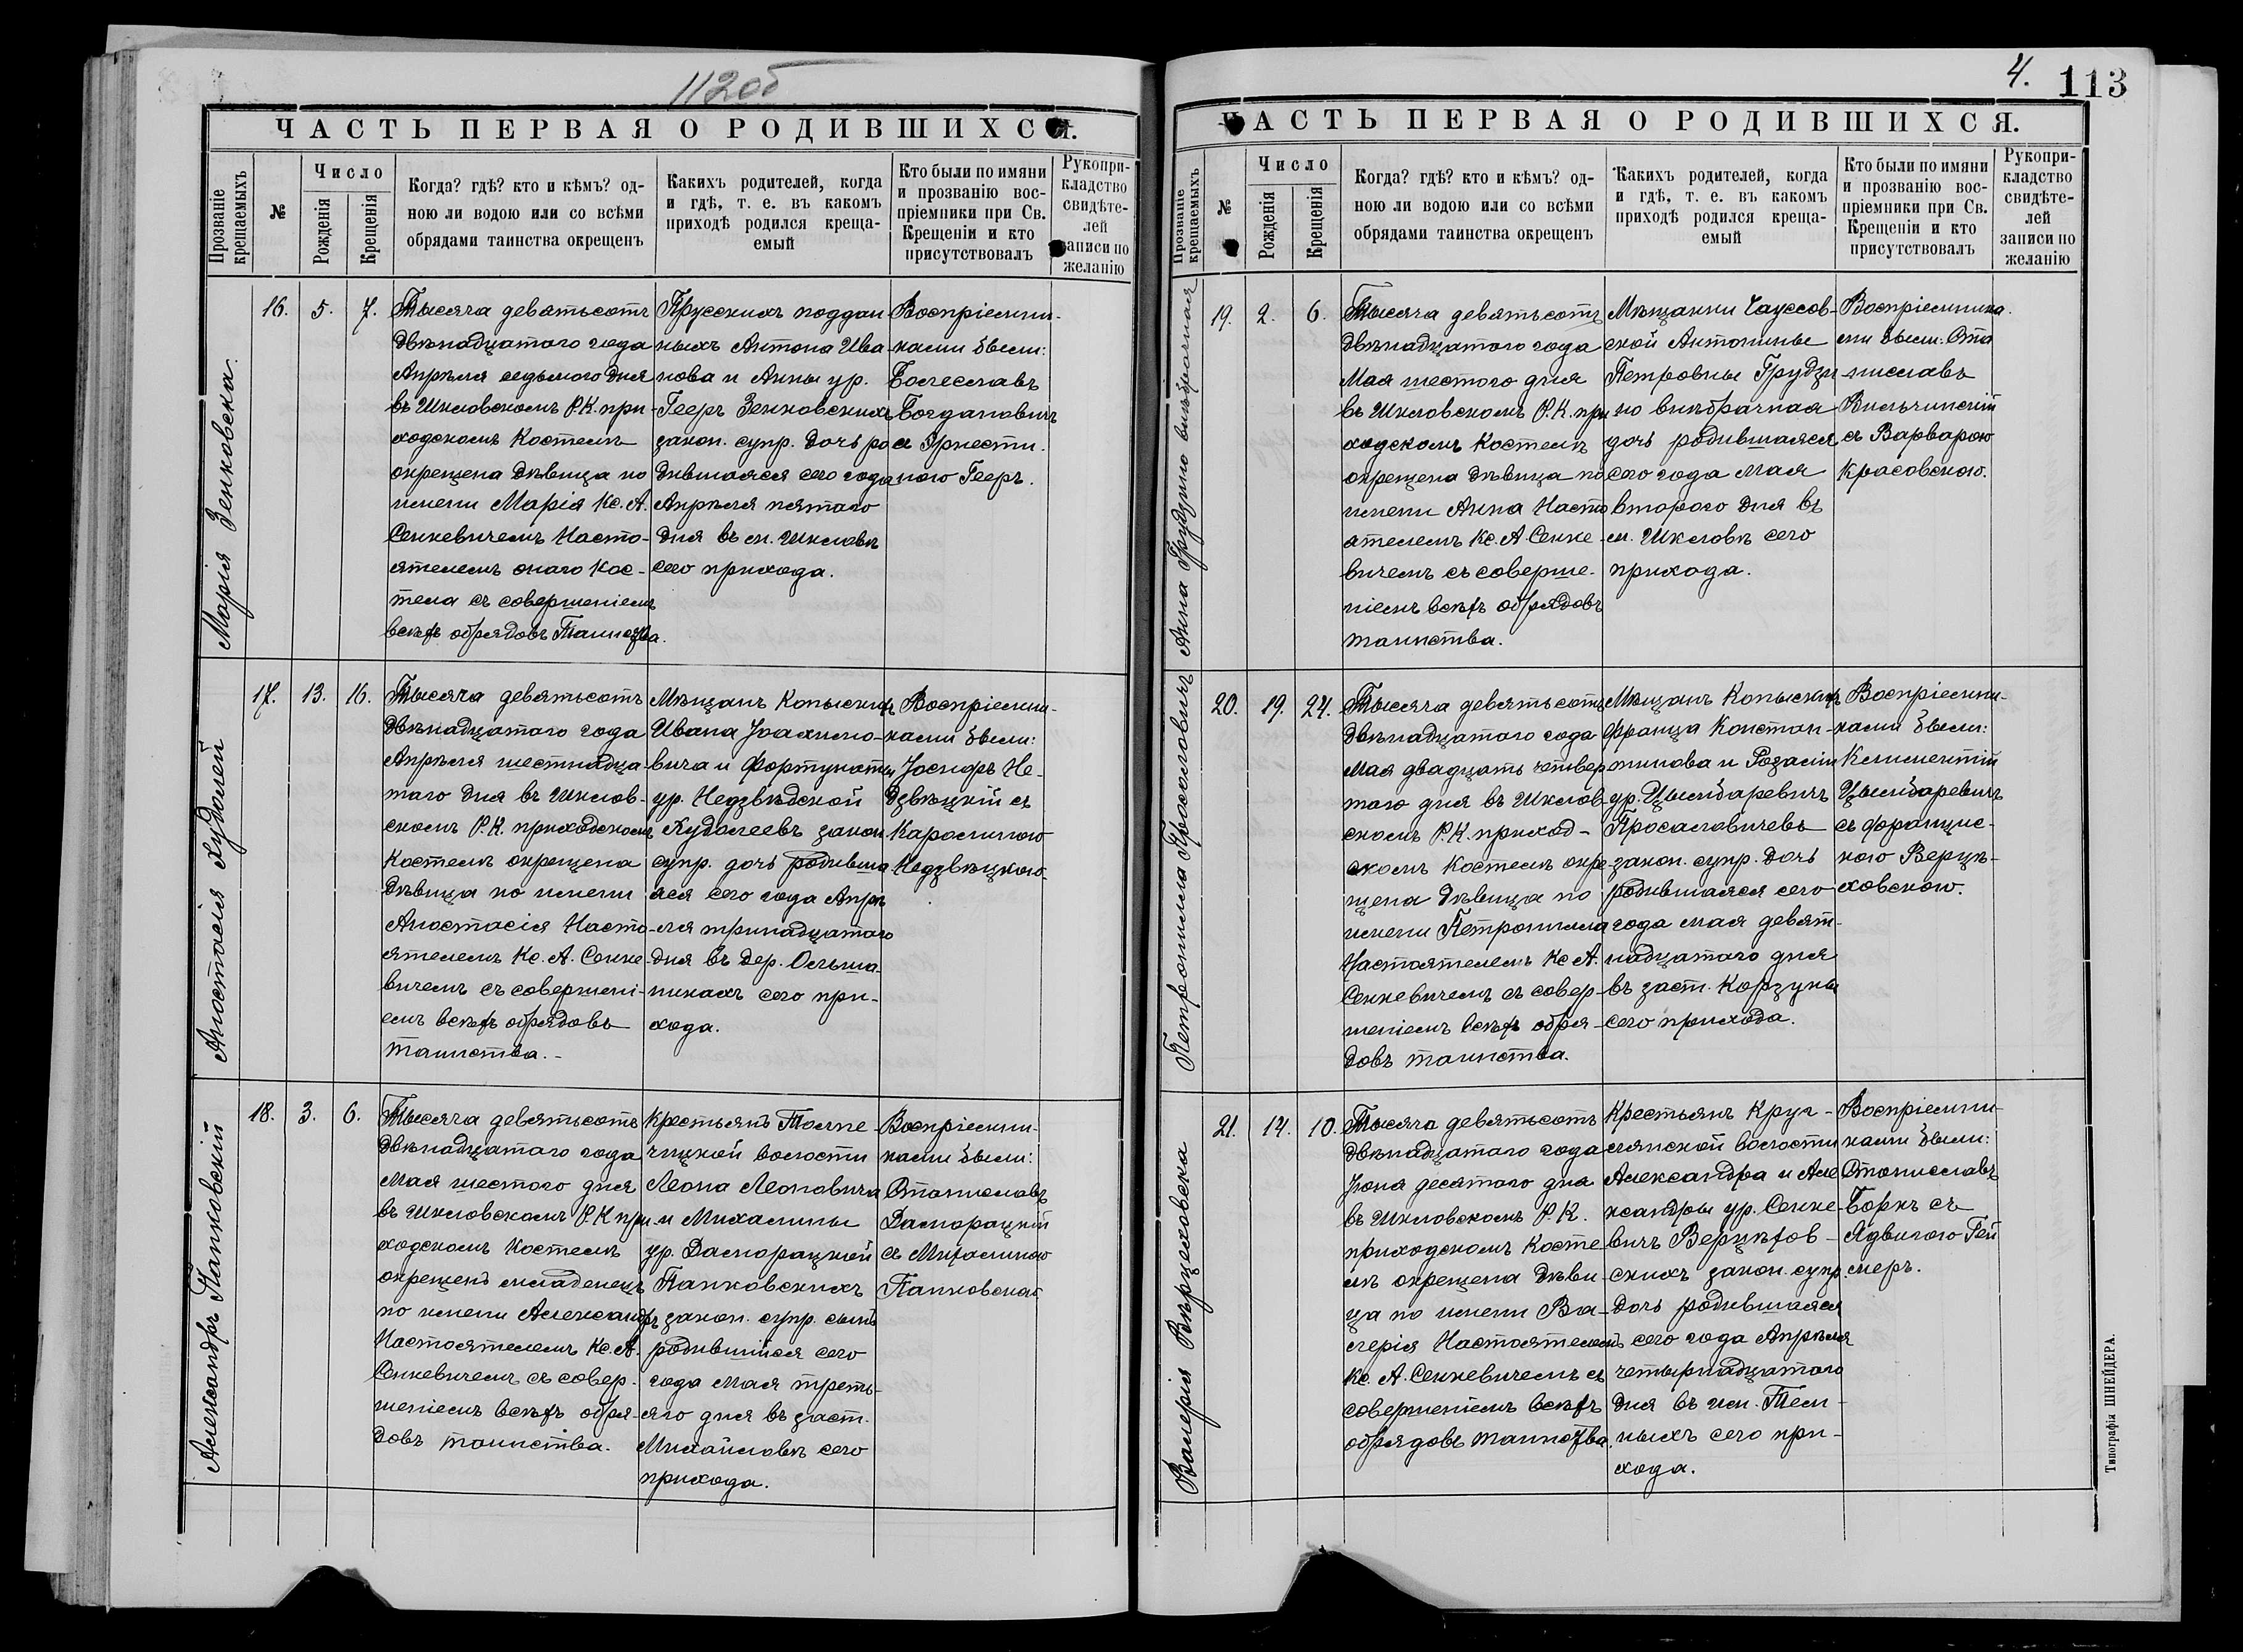 112об
ЧАСТЬ ПЕРВАЯ О РОДИВШИХСЯ.
Прозваніе крещаемыхъ
№
Число
Рожденія
Крещенія
Когда? гдѣ? кто и кѣмъ? од-
ною ли водою или со всѣми
обрядами таинства окрещенъ
Какихъ родителей, когда
и гдѣ, т. е. въ какомъ
приходѣ родился креща-
емый
Кто были по имяни
и прозванію вос-
пріемники при Св.
Крещеніи и кто
присутствовалъ
Рукопри-
кладство
свидѣте-
лей
записи по
желанію
Марія Зенковска
16.
5.
7.
Тысяча девятьсотъ
двѣнадцатого года
Апрѣля седьмого дня
въ Шкловскомъ Р.К. при-
ходскомъ Костелѣ
окрещена дѣвица по
имени Марія Кс. А.
Сенкевичемъ Насто-
ятелемъ онаго Кос-
тела съ совершеніемъ
всѣхъ обрядовъ Таинства.
Прусскихъ поддан
ныхъ Антона Ива-
нова и Анны ур.
Геерѣ Зенковскихъ
закон. супр. дочь ро
дившаяся сего года
Апрѣля пятаго
дня въ м. Шкловѣ
сего прихода.
Воспріемни-
ками были:
Болеславъ
Богдановичъ
а Эрнести-
ною Геерѣ.
Анастасія Худолей
17.
13.
16.
Тысяча девятьсотъ
двѣнадцатого года
Апрѣля шестнадца-
таго дня въ Шклов-
скомъ Р.К. приходскомъ
Костелѣ окрещена
дѣвица по имени
Анастасія Насто-
ятелемъ Кс. А. Сенке-
вичемъ съ совершені-
емъ всѣхъ обрядовъ
таинства.-
Мѣщанъ Копыскихъ
Ивана Іоахимо-
вича и Фортунаты
ур. Недзвѣдской
Худолеевъ закон.
супр. дочь родивша
яся сего года Апрѣ
ля тринадцатаго
дня въ дер. Ольша-
никахъ сего при-
хода.
Воспріемни-
ками были:
Іосифъ Не-
дзвѣцкій съ
Каролиною
Недзвѣцкою.
Александръ Панковскій
18.
3.
6.
Тысяча девятьсотъ
двѣнадцатаго года
Мая шестого дня
въ Шкловскомъ Р.К при
ходскомъ Костелѣ
окрещенъ младенецъ
по имени Александръ
Настоятелемъ Кс. А.
Сенкевичемъ съ совер-
шеніемъ всѣхъ обря-
довъ таинства.
Крестьянъ Толпе-
чицкой волости
Леона Леоновича
и Михалины
ур. Даморацкой
Панковскихъ
закон. супр. сынъ
родившійся сего
года Мая треть-
яго дня въ заст.
Михайловкѣ сего
прихода.
Воспріемни-
ками были:
Станиславъ
Даморацкій
съ Михалиною
Панковской.
4. 113
ЧАСТЬ ПЕРВАЯ О РОДИВШИХСЯ.
Прозваніе крещаемыхъ
№
Число
Рожденія
Крещенія
Когда? гдѣ? кто и кѣмъ? од-
ною ли водою или со всѣми
обрядами таинства окрещенъ
Какихъ родителей, когда
и гдѣ, т. е. въ какомъ
приходѣ родился креща-
емый
Кто были по имяни
и прозванію вос-
пріемники при Св.
Крещеніи и кто
присутствовалъ
Рукопри-
кладство
свидѣте-
лей
записи по
желанію
Анна Грудзино внѣбрачная
19.
2.
6.
Тысяча девятьсотъ
двѣнадцатаго года
Мая шестого дня
въ Шкловскомъ Р.К. при
ходскомъ Костелѣ
окрещена дѣвица по
имени Анна Насто
ятелемъ Кс. А Сенке-
вичемъ съ соверше-
ніемъ всѣхъ обрядовъ
таинства.
Мѣщанки Чауссов-
ской Антонины
Петровны Грудзи
но внѣбрачная
дочь родившаяся
сего года Мая
второго дня въ
м. Шкловѣ сего
прихода.
Воспріемника
ми были: Ста
ниславъ
Вильчинскій
съ Варварою
Красовскою.
Петронилла Просаловичъ
20.
19.
24.
Тысяча девятьсотъ
двѣнадцатаго года
Мая двадцать четвер
таго дня въ Шклов-
скомъ Р.К. приход-
скомъ Костелѣ окре-
щена дѣвица по
имени Петронилла
Настоятелемъ Кс А.
Сенкевичемъ съ совер-
шеніемъ всѣхъ обря-
довъ таинства.
Мѣщанъ Копыскихъ
Франца Констан-
тинова и Розаліи
ур. Цымбаревичъ
Просаловичевъ
закон. супр. дочь
родившаяся сего
года мая девят-
надцатаго дня
въ заст. Корзуны
сего прихода.
Воспріемни-
ками были:
Климентій
Цымбаревичъ
съ Францис-
кою Верцѣ-
ховскою.
Валерія Вѣрцеховска
21.
14.
10.
Тысяча девятьсотъ
двѣнадцатаго года
Іюня десятаго дня
въ Шкловскомъ Р.К.
приходскомъ Косте-
лѣ окрещена дѣви-
ца по имени Ва-
лерія Настоятелемъ
кс. А. Сенкевичемъ съ
совершеніемъ всѣхъ
обрядовъ таинства.
Крестьянъ Круг-
лянской волости
Александра и Але
ксандры ур. Сенке-
вичъ Верцѣхов-
скихъ закон. супр.
дочь родившаяся
сего года Апрѣля
четырнадцатаго
дня въ им. Тем-
ныхъ сего при-
хода.
Воспріемни-
ками были:
Станиславъ
Боркъ съ
Ядвигою Гей
смеръ.
Типографія ШНЕЙДЕРА.